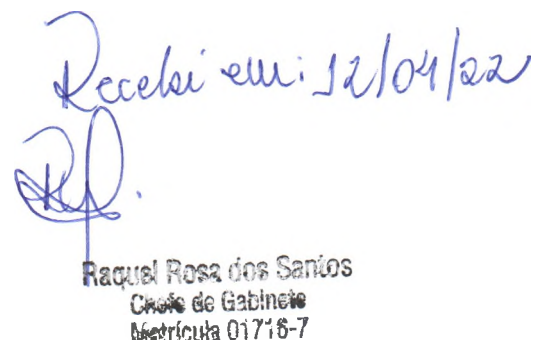 Recebi em: 12/04/22
Raquel Rosa dos Santos
Chefe de Gabinete
Matrícula 01716-7